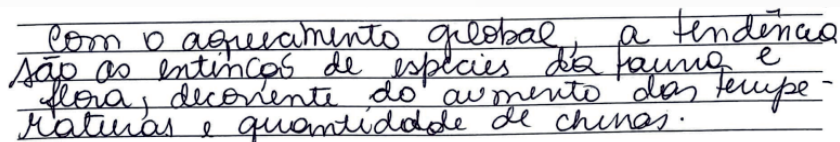 Com o aquecimento global, a tendência
são as entinções de espécies da fauna e
flora, decorrente do aumento das tempe-
raturas e quantidade de chuvas.